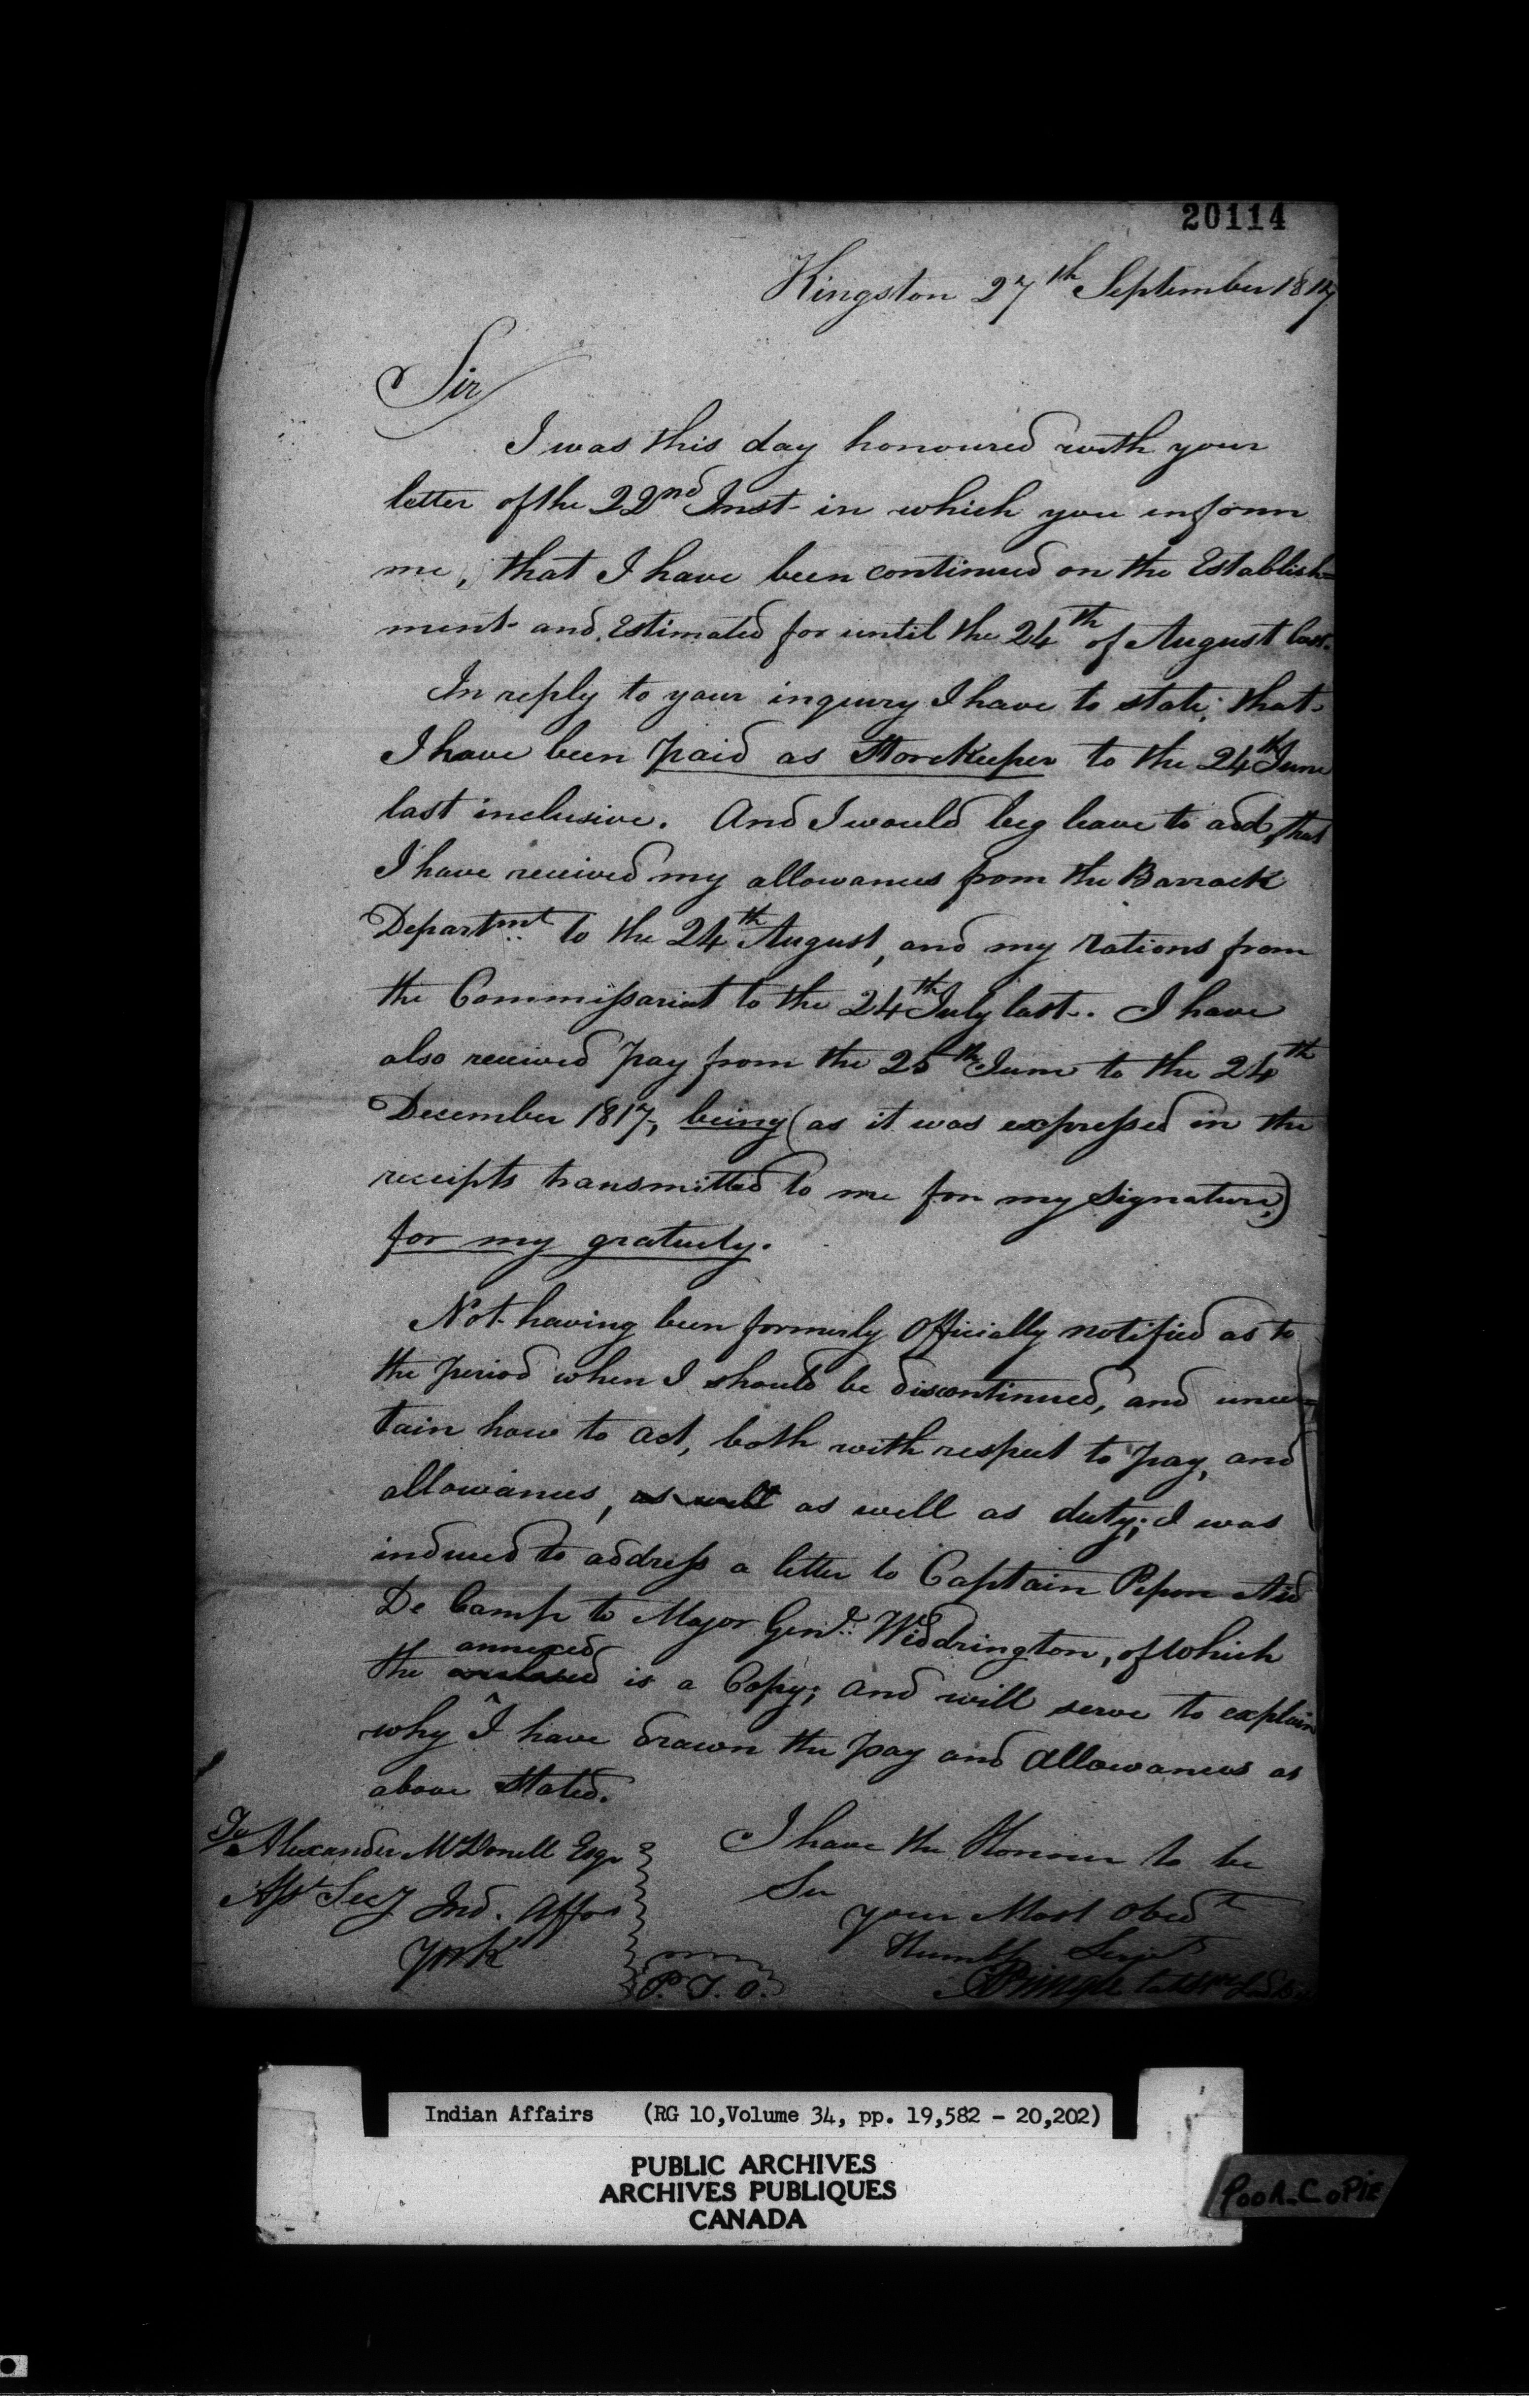 20114
Kingston 27th September 1817
Sir
I was this day honoured with your
letter of the 22nd Inst. in which you inform
me, that I have been continued on the Establish=
ment and Estimated for until the 24th of August last.
In reply to your inquiry I have to state, that
I have been paid as StoreKeeper to the 24th June
last inclusive. And I would beg leave to add, that
I have received my allowances from the Barrack
Departmt to the 24th August, and my Rations from
the Commissariat to the 24th July last. I have
also received pay from the 25th June to the 24th
December 1817, being (as it was expressed in the
receipts transmitted to me for my signature,)
for my gratuity.
Not having been formerly Officially notified as to
the period when I should be discontinued, and uncer
tain how to act, both with respect to pay, and
allowances, as well as well as duty; I was
induced to address a letter to Captain Pipon Aid
De Camp to Major Genl. Widdrington, of which
annexed
the enclosed is a Copy; and will serve to explain
why I have drawn the pay and allowances as
above stated.
I have the Honour to be
Sir
your Most Obedt
Humble Servt
Pringle
To Alexander McDonell Esqr
Asst Secy Ind. Affrs
York
P. T. O.
Indian Affairs (RG 10, Volume 34, pp. 19,582 - 20,202)
PUBLIC ARCHIVES
ARCHIVES PUBLIQUES
CANADA
POOR COPIE